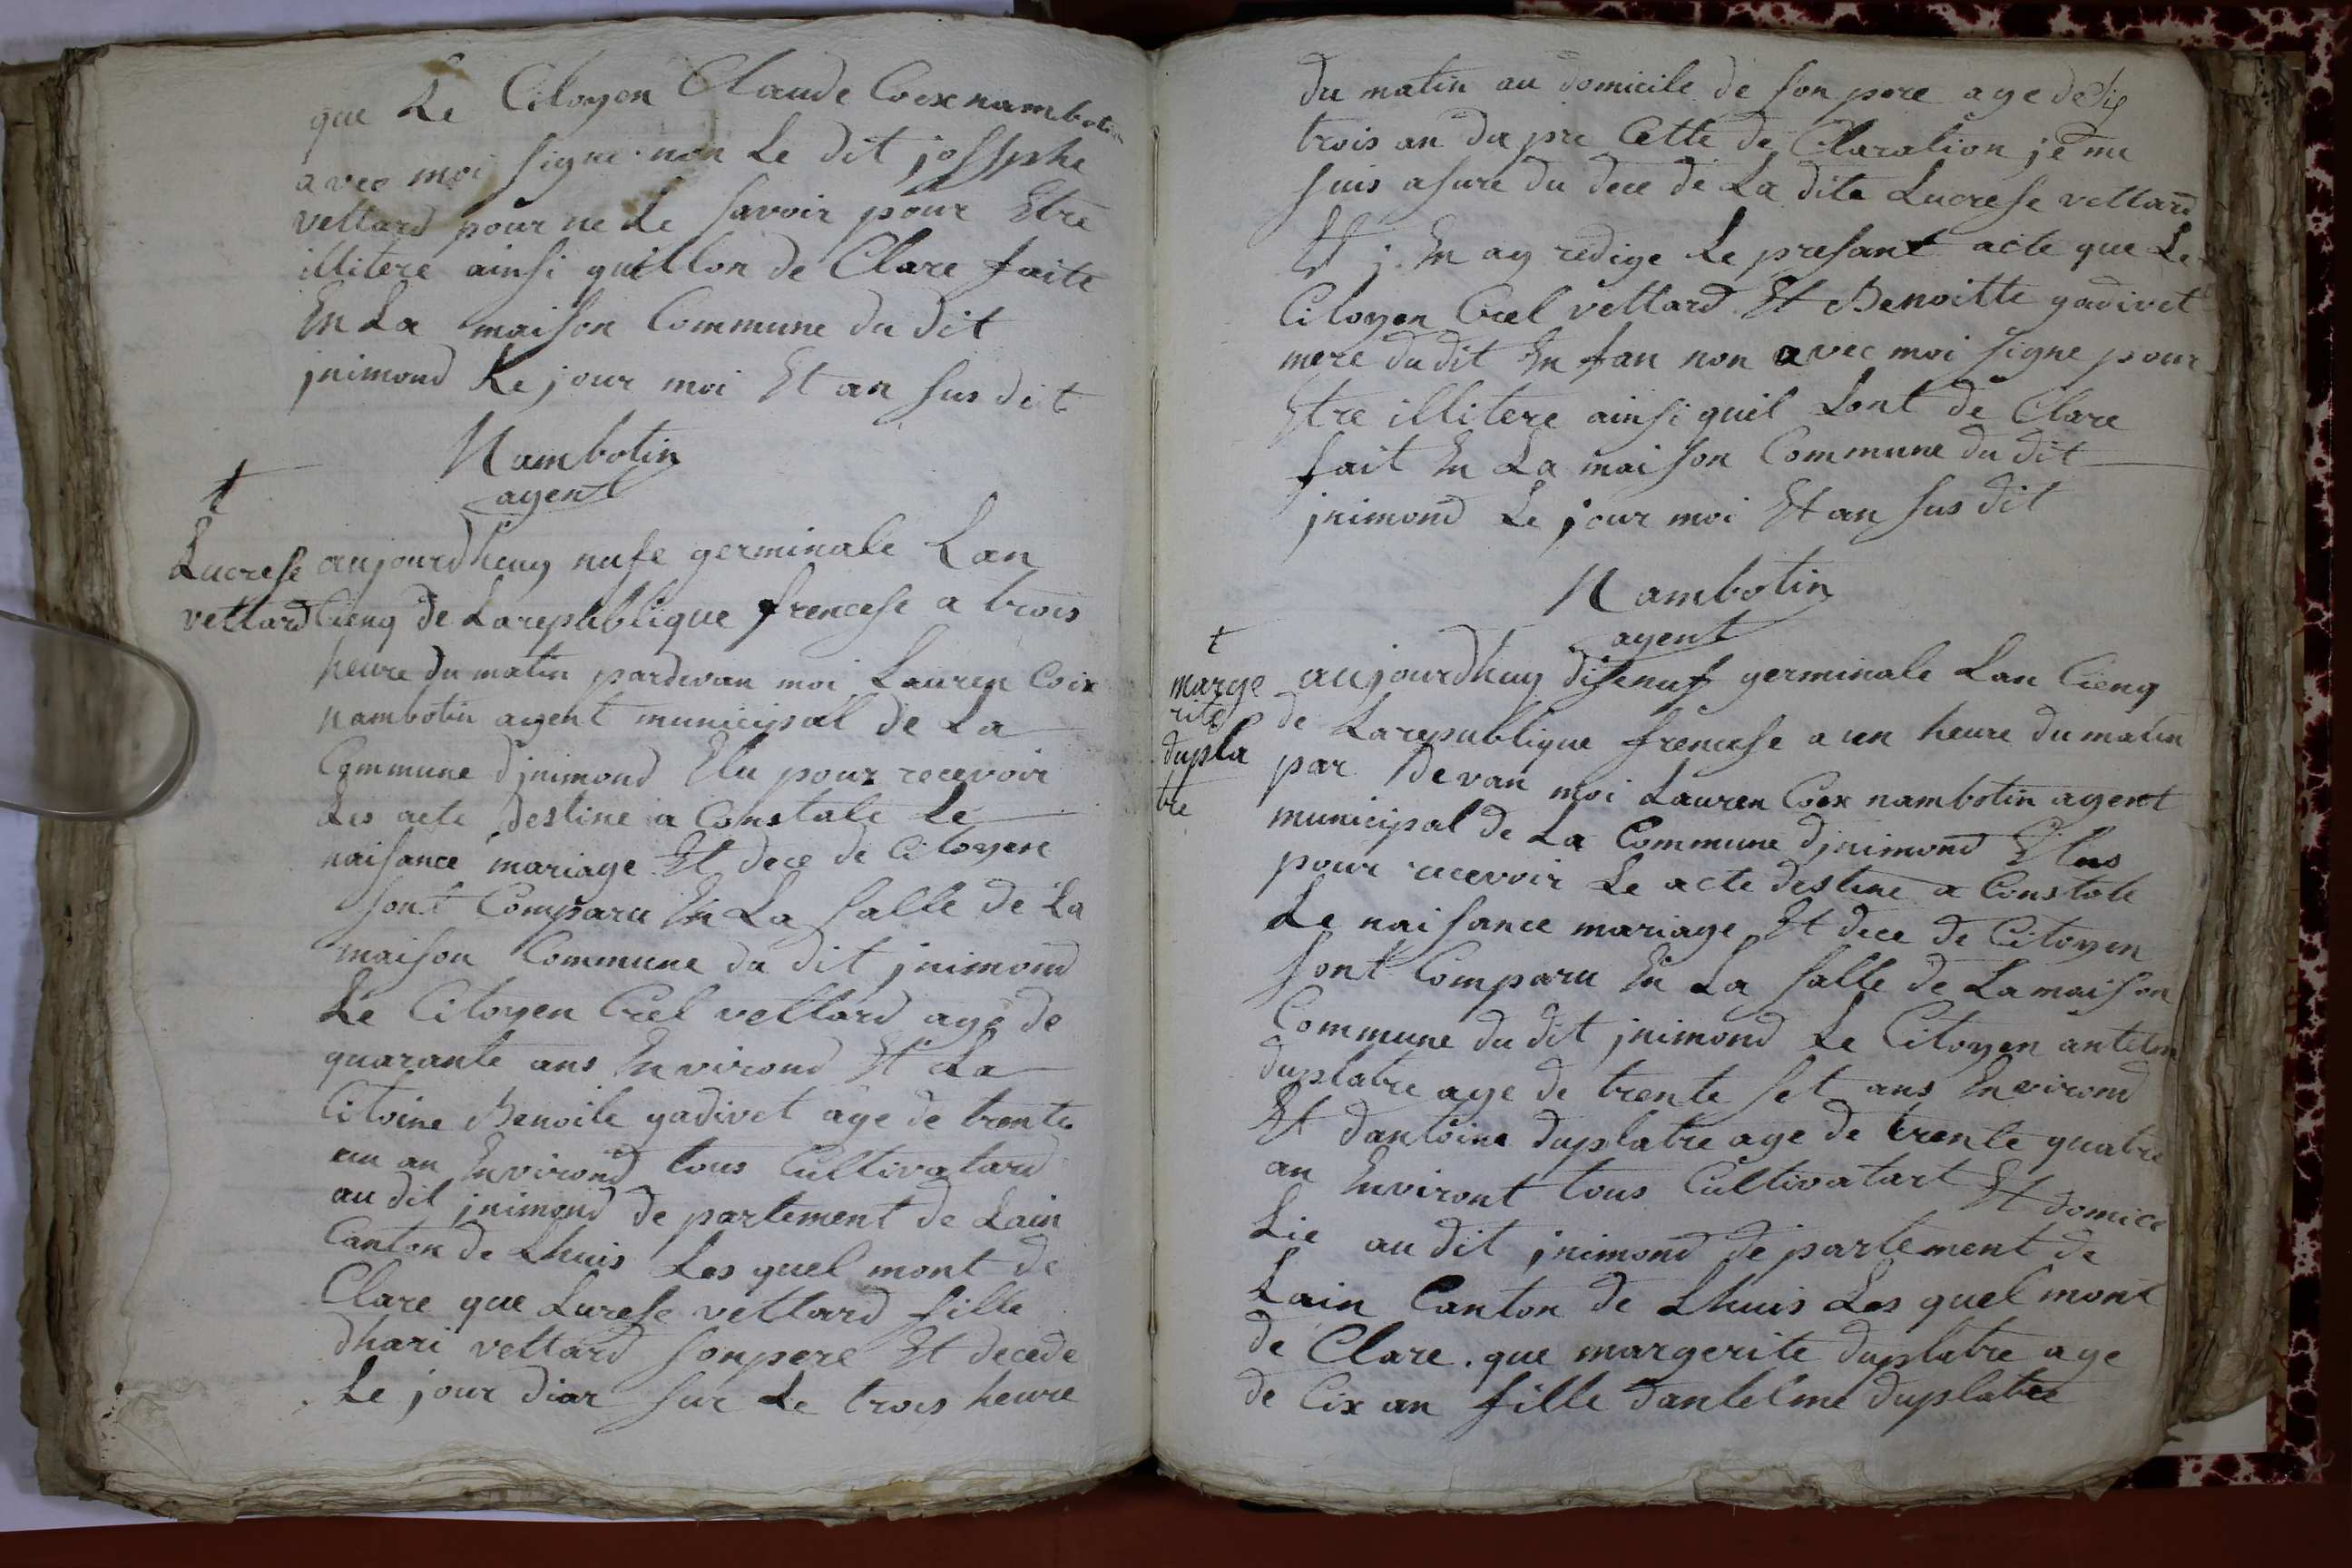 que Le Citoyen Claude Coex nambotin
avec moi signe non Le dit josphe
vettard pour ne Le savoir pour Etre
illitere ainsi quillon de Clare faite
En La maison Commune du dit
jnimond Le jour moi Et an sus dit
Nambotin
agent
t
Lucrese
vettard
aujourdhuy nufe germinale Lan
Cienq de Larepublique francese a trois
heure du matin pardevan moi Lauren Coix
nambotin agent municipal de La
Commune djnimond Elu pour recevoir
Les acte destine a Constale Le
naisance mariage Et dece de Citoyen
sont Comparu En La salle de La
maison Commune du dit jnimond
Le Citoyen Criel vettard age de
quarante ans Environd Et La
Citoine Benoite gadivet age de trente
un an Environd tous Cultivatard
au dit jnimond de partement de Lain
Canton de Lhuis Les quel mont de
Clare que Lurese vettard fille
dhari vettard son pere Et decede
Le jour diar sur Le trois heure
du matin au domicile de son pere age de
trois an da pre Cette de Claration je me
suis asure du dece de La dite Lucrese vettard
Et j. En ay redige Le presant acte que Le
Citoyen Criel vettard Et Benoitte gadivet
mere du dit En fan non avec moi signe pour
Etre illitere ainsi quil Lont de Clare
fait En La maison Commune du dit
jnimond Le jour moi Et an sus dit
Nambotin
agent
t
marge
rite
dupla
tre
aujourdhuy disenuf germinale Lan Cienq
de Larepublique francese a un heure du matin
par devan moi Lauren Coex nambotin agent
municipal de La Commune djnimond Elus
pour recevoir Le acte destine a Constate
Le naisance mariage Et dece de Citoyen
sont Comparu En La salle de La maison
Commune du dit jnimond Le Citoyen antelm
duplatre age de trente set ans Environd
Et dantoine duplatre age de trente quatre
an Environt tous Cultivatart Et domice
Lie au dit jnimond de partement de
Lain Canton de Lhuis Les quel mont
de Clare. que margerite duplatre age
de Cix an fille dantelme duplatre